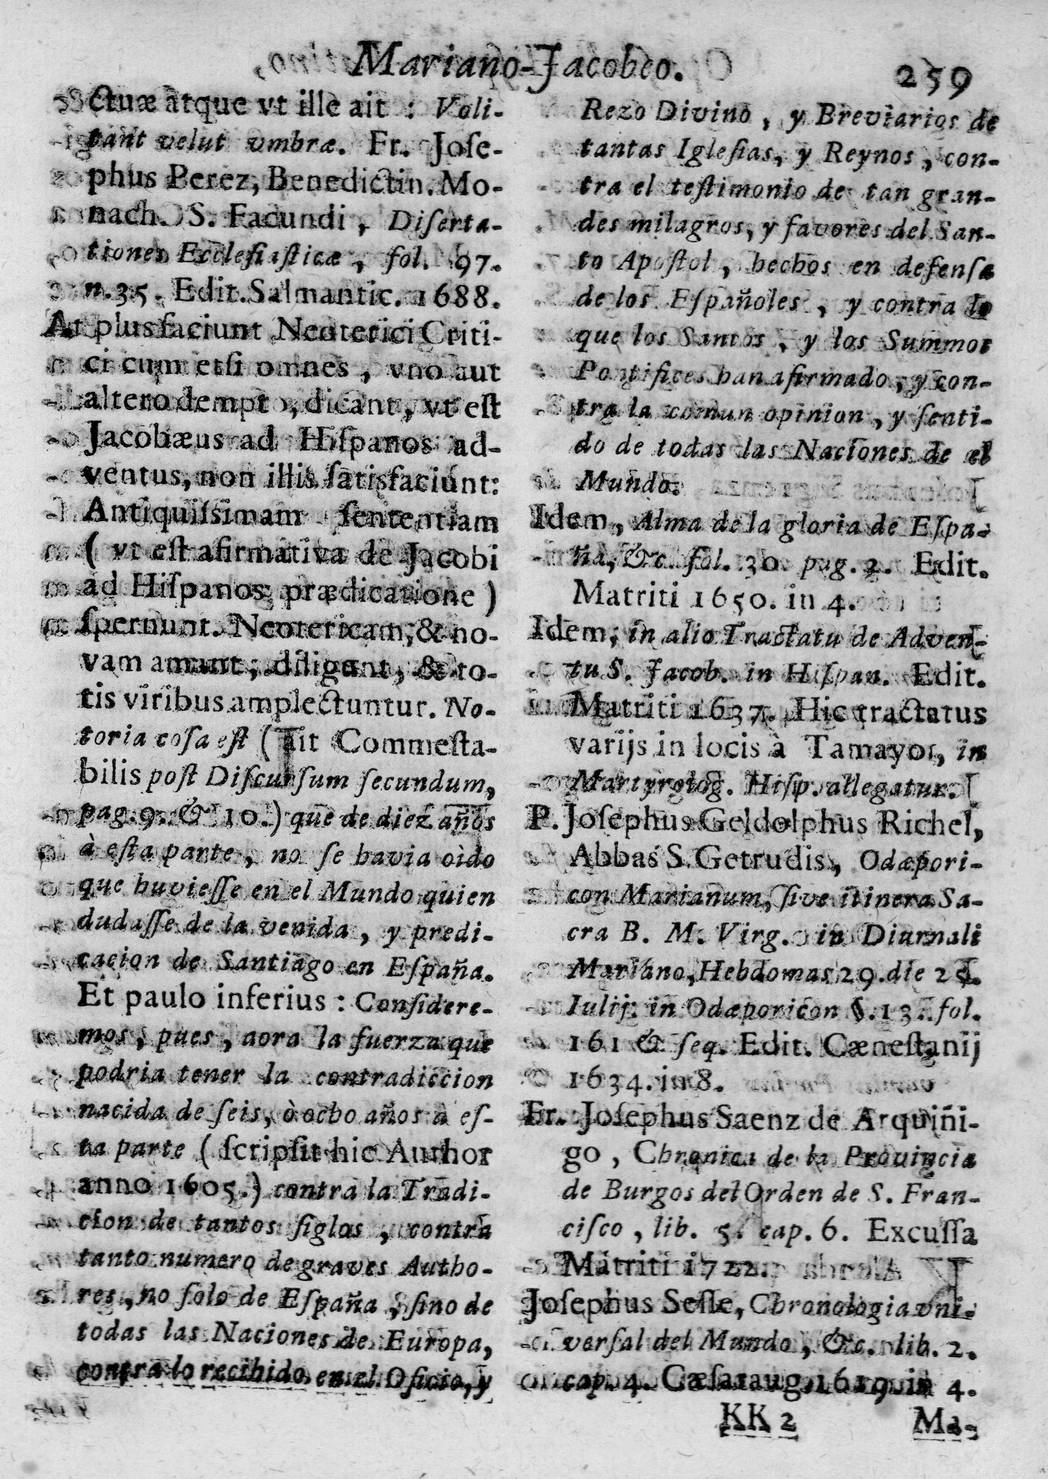 Mariano-Jacobeo. 259
ctuæ atque vt ille ait : Voli-
tant velut vmbræ. Fr. Joſe-
phus Perez, Benedictin. Mo-
nach. S. Facundi, Diſerta-
tiones Eccleſiaſticæ, fol. 97.
n. 35. Edit. Salmantic. 1688.
At plus faciunt Neoterici Criti-
ci cum etſi omnes, vno aut
altero dempto, dicant, vt eſt
Jacobæus ad Hiſpanos ad-
ventus, non illis ſatisfaciunt:
Antiquiſsimam ſententiam
( vt eſt afirmativa de Jacobi
ad Hiſpanos prædicatione )
ſpernunt. Neotericam, & no-
vam amant; diligunt, & to-
tis viribus amplectuntur. No-
toria coſa eſt ( ait Commeſta-
bilis poſt Diſcurſum ſecundum,
pag. 9. & 10.) que de diez años
à eſta parte, no ſe havia oido
que huvieſſe en el Mundo quien
dudaſſe de la venida, y predi-
cacion de Santiago en Eſpaña.
Et paulo inferius : Conſidere-
mos, pues, aora la fuerza que
podria tener la contradiccion
nacida de ſeis, ò ocho años à eſ-
ta parte ( ſcripſit hic Author
anno 1605.) contra la Tradi-
cion de tantos ſiglos, contra
tanto numero de graves Autho-
res, no ſolo de Eſpaña, ſino de
todas las Naciones de Europa,
contra lo recibido en el Oficio, y
Rezo Divino, y Breviarios de
tantas Igleſias, y Reynos, con-
tra el teſtimonio de tan gran-
des milagros, y favores del San-
to Apoſtol, hechos en defenſa
de los Eſpañoles, y contra lo
que los Santos, y los Summos
Pontifices han afirmado, y con-
tra la comun opinion, y ſenti-
do de todas las Naciones de el
Mundo.
Idem, Alma de la gloria de Eſpa-
ña, &c. fol. 30. pag. 2. Edit.
Matriti 1650. in 4.
Idem, in alio Tractatu de Adven-
tu S. Jacob. in Hiſpan. Edit.
Matriti 1637. Hic tractatus
varijs in locis à Tamayo, in
Martyrolog. Hiſp. allegatur.
P. Joſephus Geldolphus Richel,
Abbas S. Getrudis, Odæpori-
con Marianum, ſive itinera Sa-
cra B. M. Virg. in Diurnali
Mariano, Hebdomas 29. die 25.
Iulij. in Odæporicon §. 13. fol.
161 & ſeq. Edit. Cæneſtanij
1634. in 8.
Fr. Joſephus Saenz de Arquiñi-
go, Chronica de la Provincia
de Burgos del Orden de S. Fran-
ciſco, lib. 5. cap. 6. Excuſſa
Matriti 1722.
Joſephus Seſſe, Chronologia vni-
verſal del Mundo, &c. lib. 2.
cap. 4. Cæſaraug. 1619. in 4.
KK 2 Ma-